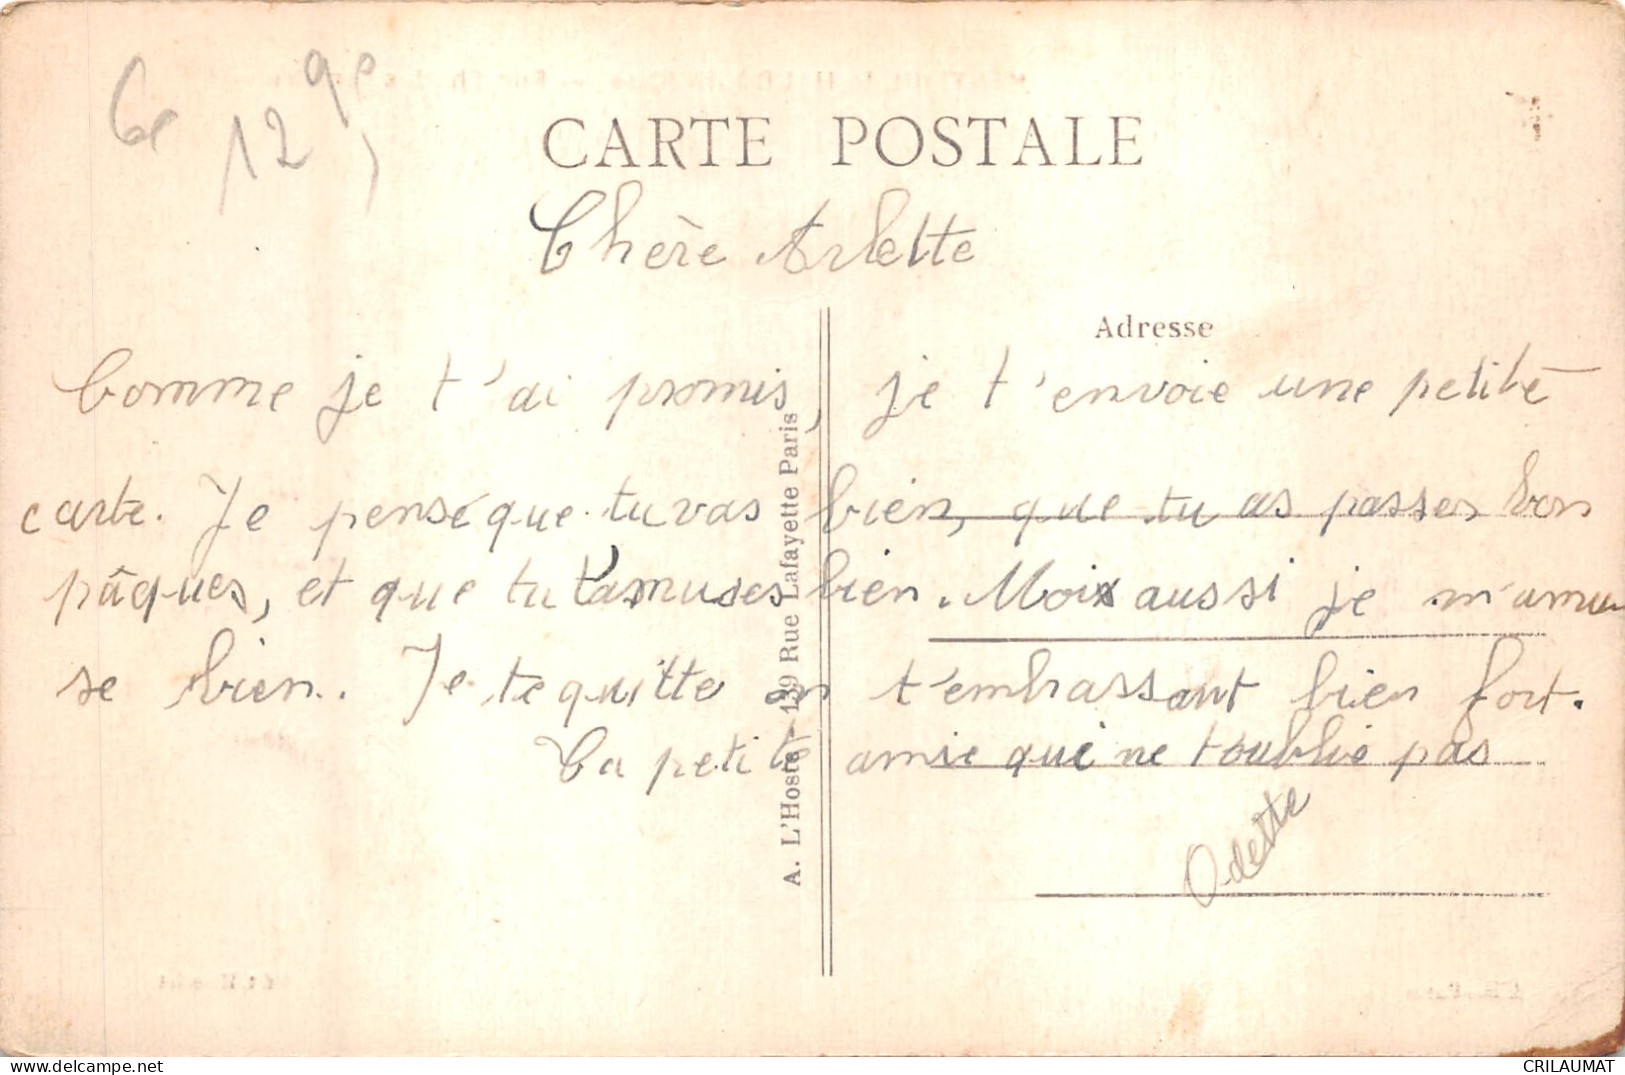 CARTE POSTALE
Chère Arlette
Adresse
Comme je t'ai promis, je t'envoie une petite
carte. Je pense que tu vas bien, que tu as passer bon
pâques, et que tu t'amuses bien. Moi aussi je m'amu
se bien. Je te quitte en t'embrassant bien fort.
Ta petite amie qui ne t'oublie pas
Odette
A. L'Hoste 139 Rue Lafayette Paris
delcampe.net
CRILAUMAT